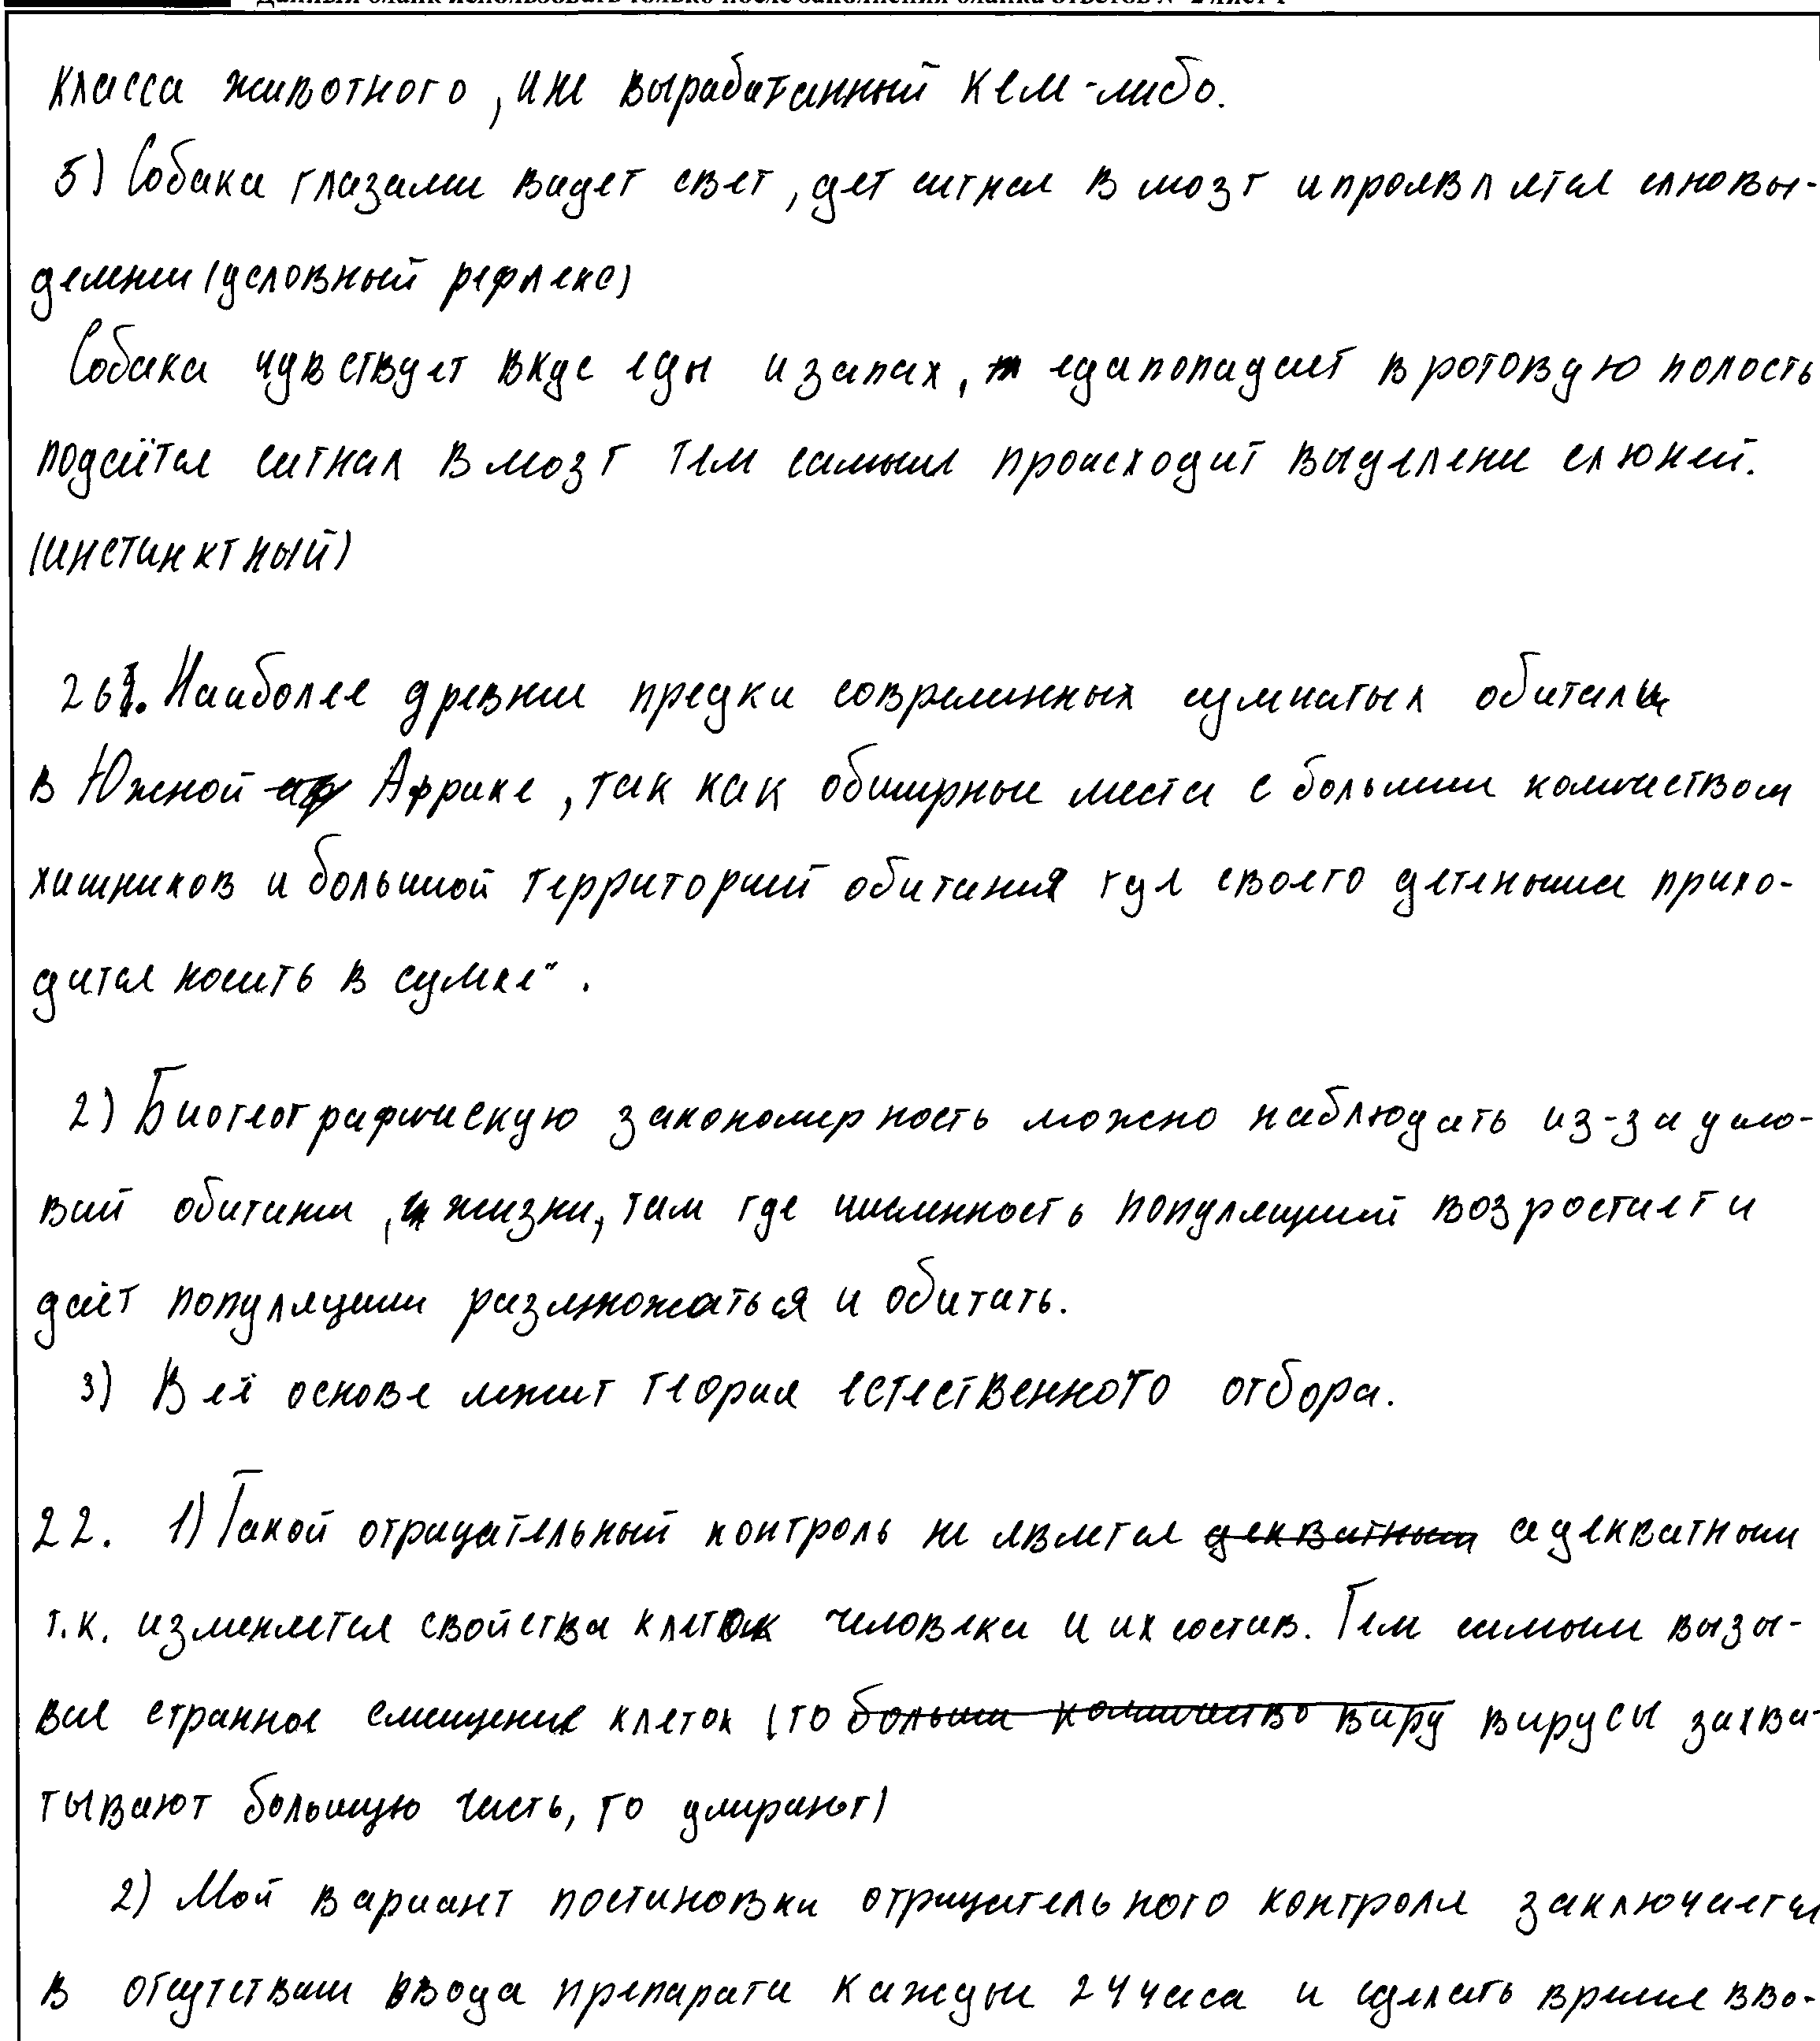 Данный бланк использовать только после заполнения бланка ответов № 2 лист 1
класса животного, иже выработанный кем-либо.
5) Собака глазами видет свет, дет сигнал в мозг и проявляется слювы-
делении (условный рефлекс)
Собака чувствует вкус еды и запах, еда попадает в ротовую полость
подаётся сигнал в мозг тем самым происходит выделени слюней.
(инстинктный)
261. Наиболее древнии предки современных сумчатых обитали
в Южной Африке, так как обширные места с большим количеством
хишников и большой территорией обитания где своего детеныша прихо-
дится носить в сумке".
2) Биогеографическую закономерность можно наблюдать из-за усло-
вий обитании, жизни, там где численность популяций возростает и
даёт популяции размножаться и обитать.
3) В её основе лежит теория естественного отбора.
22. 1) Такой отрицательный контроль не является декватным адекватным
т.к. изменяется свойства клеток человека и их состав. Тем самым вызы-
вая странное смещение клеток (то больши количество виру вирусы захва-
тывают большую часть, то умирают)
2) Мой вариант постановки отрицательного контроля заключается
в отсутствии ввода препарата каждые 24 часа и сделать время вво-